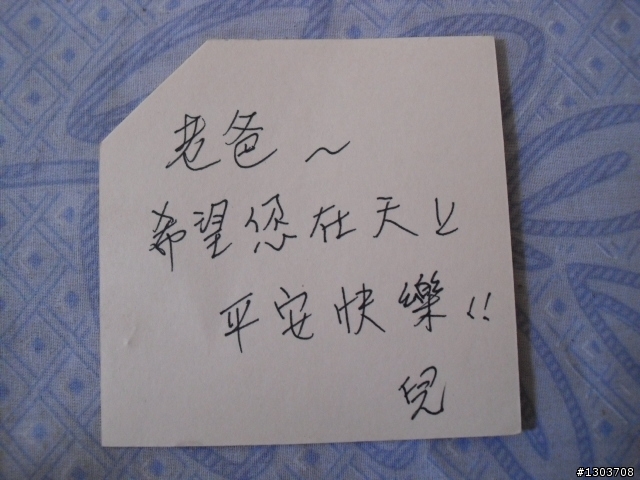 老爸～
希望您在天上
平安快樂!!
兒
#1303708